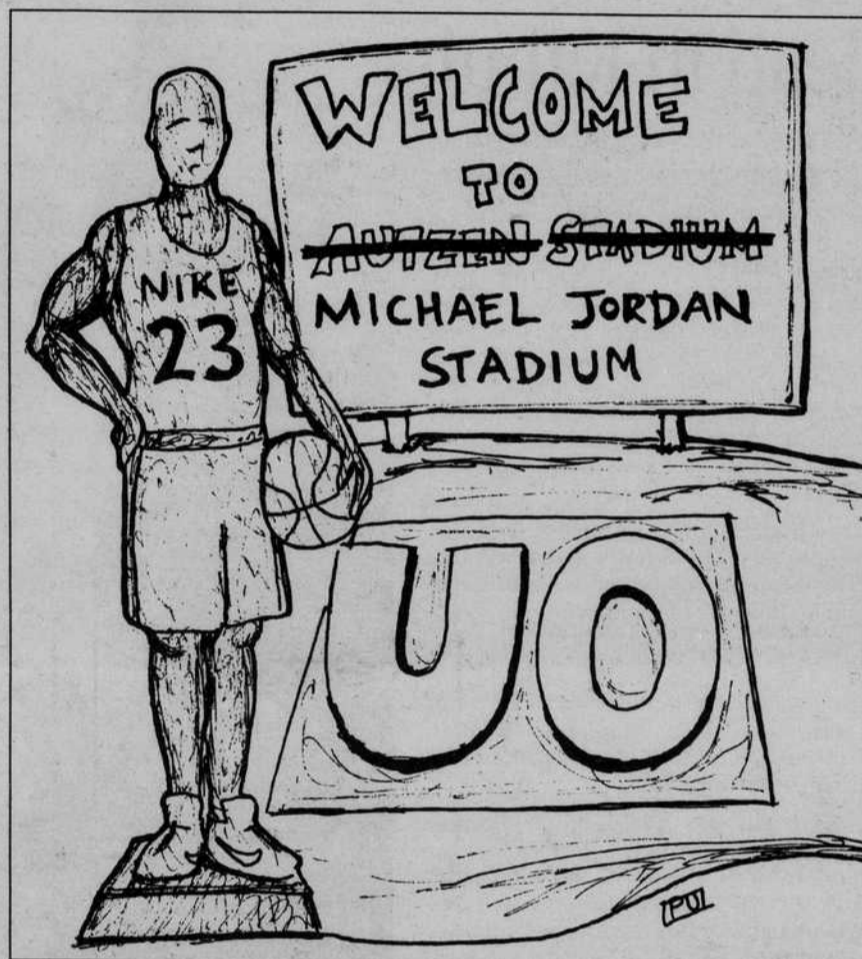 WELCOME
TO
AUTZEN STADIUM
MICHAEL JORDAN
STADIUM
NIKE
23
UO